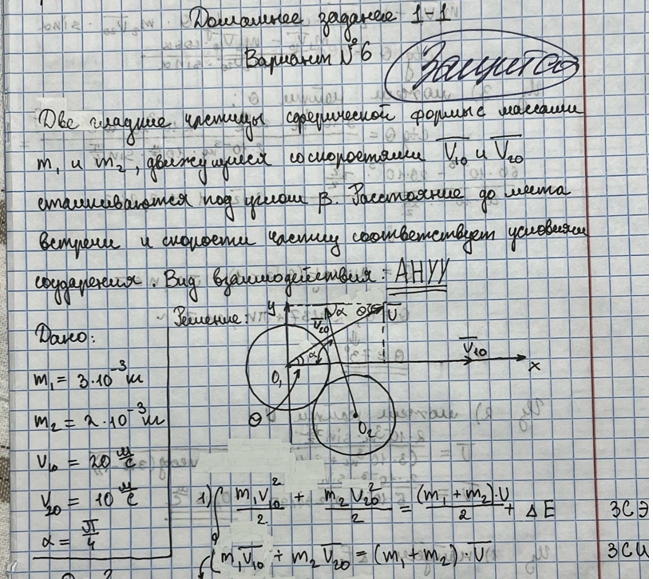 Домашнее задание 1-1
Вариант №6
Защитао
Две гладкие частицы сферической формы с массами
m₁ и m₂, движущиеся со скоростями V̅₁₀ и V̅₂₀
сталкиваются под углом β. Расстояние до места
встречи и скорости частиц соответствует условиям
соударения. Вид взаимодействия: АНУУ
Дано:
Решение:
y
V̅₂₀
α
U̅
V̅₁₀
x
O₁
α
θ
O₂
m₁ = 3·10⁻³ кг
m₂ = 2·10⁻³ кг
V₁₀ = 20 м/с
V₂₀ = 10 м/с
α = π/4
1) { m₁V₁₀²/2 + m₂V₂₀²/2 = (m₁ + m₂)·U/2 + ΔE ЗСЭ
m₁V̅₁₀ + m₂V̅₂₀ = (m₁ + m₂)·U̅ ЗСИ